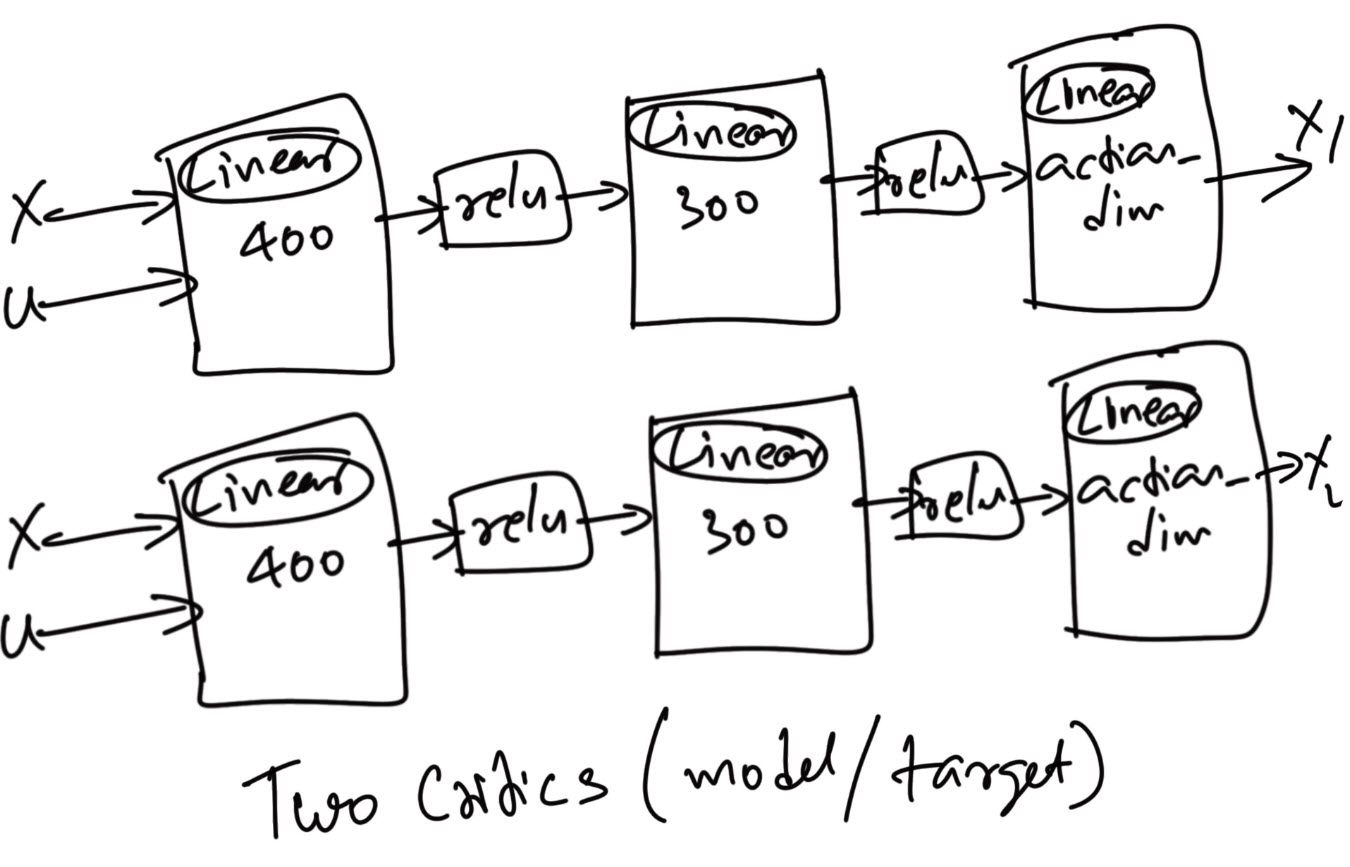 X
U
Linear
400
relu
Linear
300
relu
Linear
action_
dim
X1
X
U
Linear
400
relu
Linear
300
relu
Linear
action_
dim
X2
Two Critics (model/target)